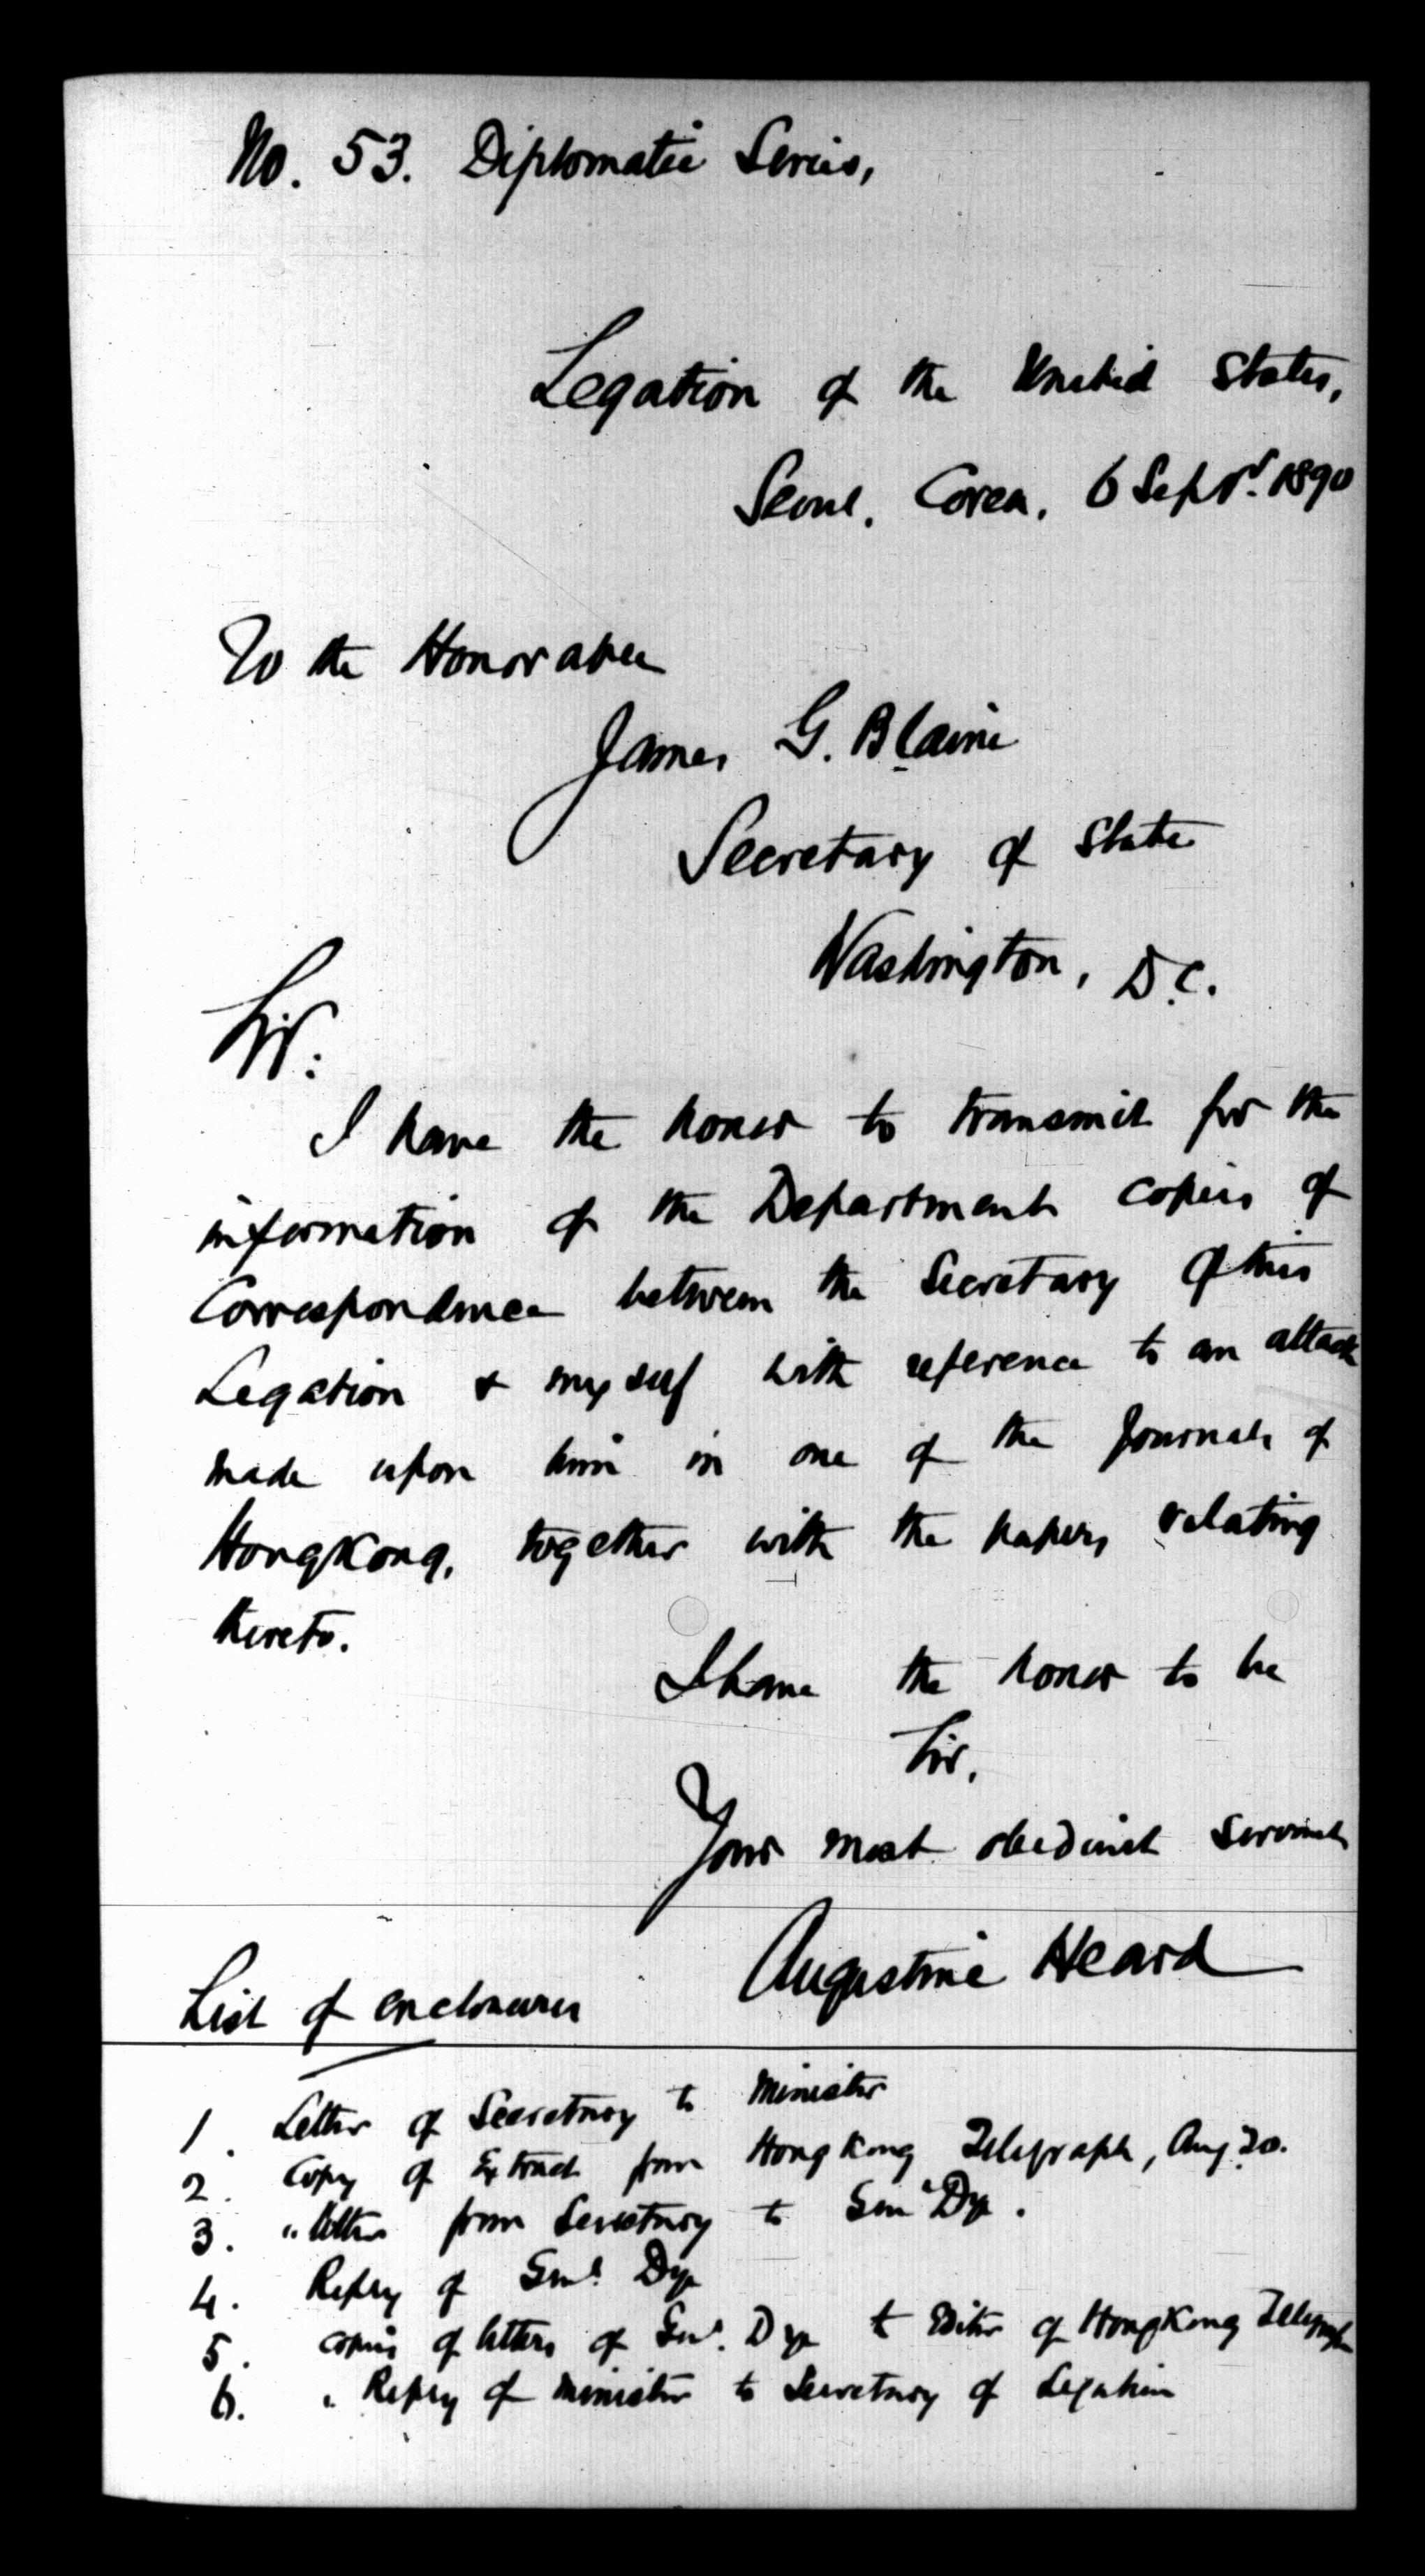 No. 53. Diplomatic Series,
Legation of the United States,
Seoul, Corea, 6 Septr. 1890
To the Honorable
James G. Blaine
Secretary of State
Washington, D.C.
Sir:
I have the honor to transmit for the
information of the Department copies of
Correspondence between the Secretary of this
Legation & myself with reference to an attack
made upon him in one of the Journals of
HongKong, together with the papers relating
thereto.
I have the honor to be
Sir,
Your most obedient servant
Augustine Heard
List of enclosures
1. Letter of Secretary to Minister
2. Copy of Extract from HongKong Telegraph, Aug 20.
3. " letter from Secretary to Genl Dye.
4. Reply of Genl. Dye
5. copies of letters of Genl. Dye to Editor of HongKong Telegraph
6. " Reply of Minister to Secretary of Legation